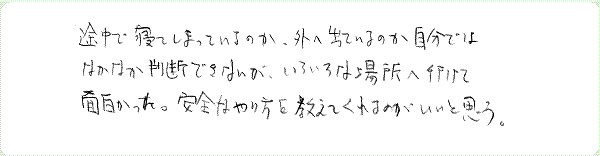 途中で寝てしまっているのか、外へ出ているのか自分では
なかなか判断できないが、いろいろな場所へ行けて
面白かった。安全なやり方を教えてくれるのがいいと思う。